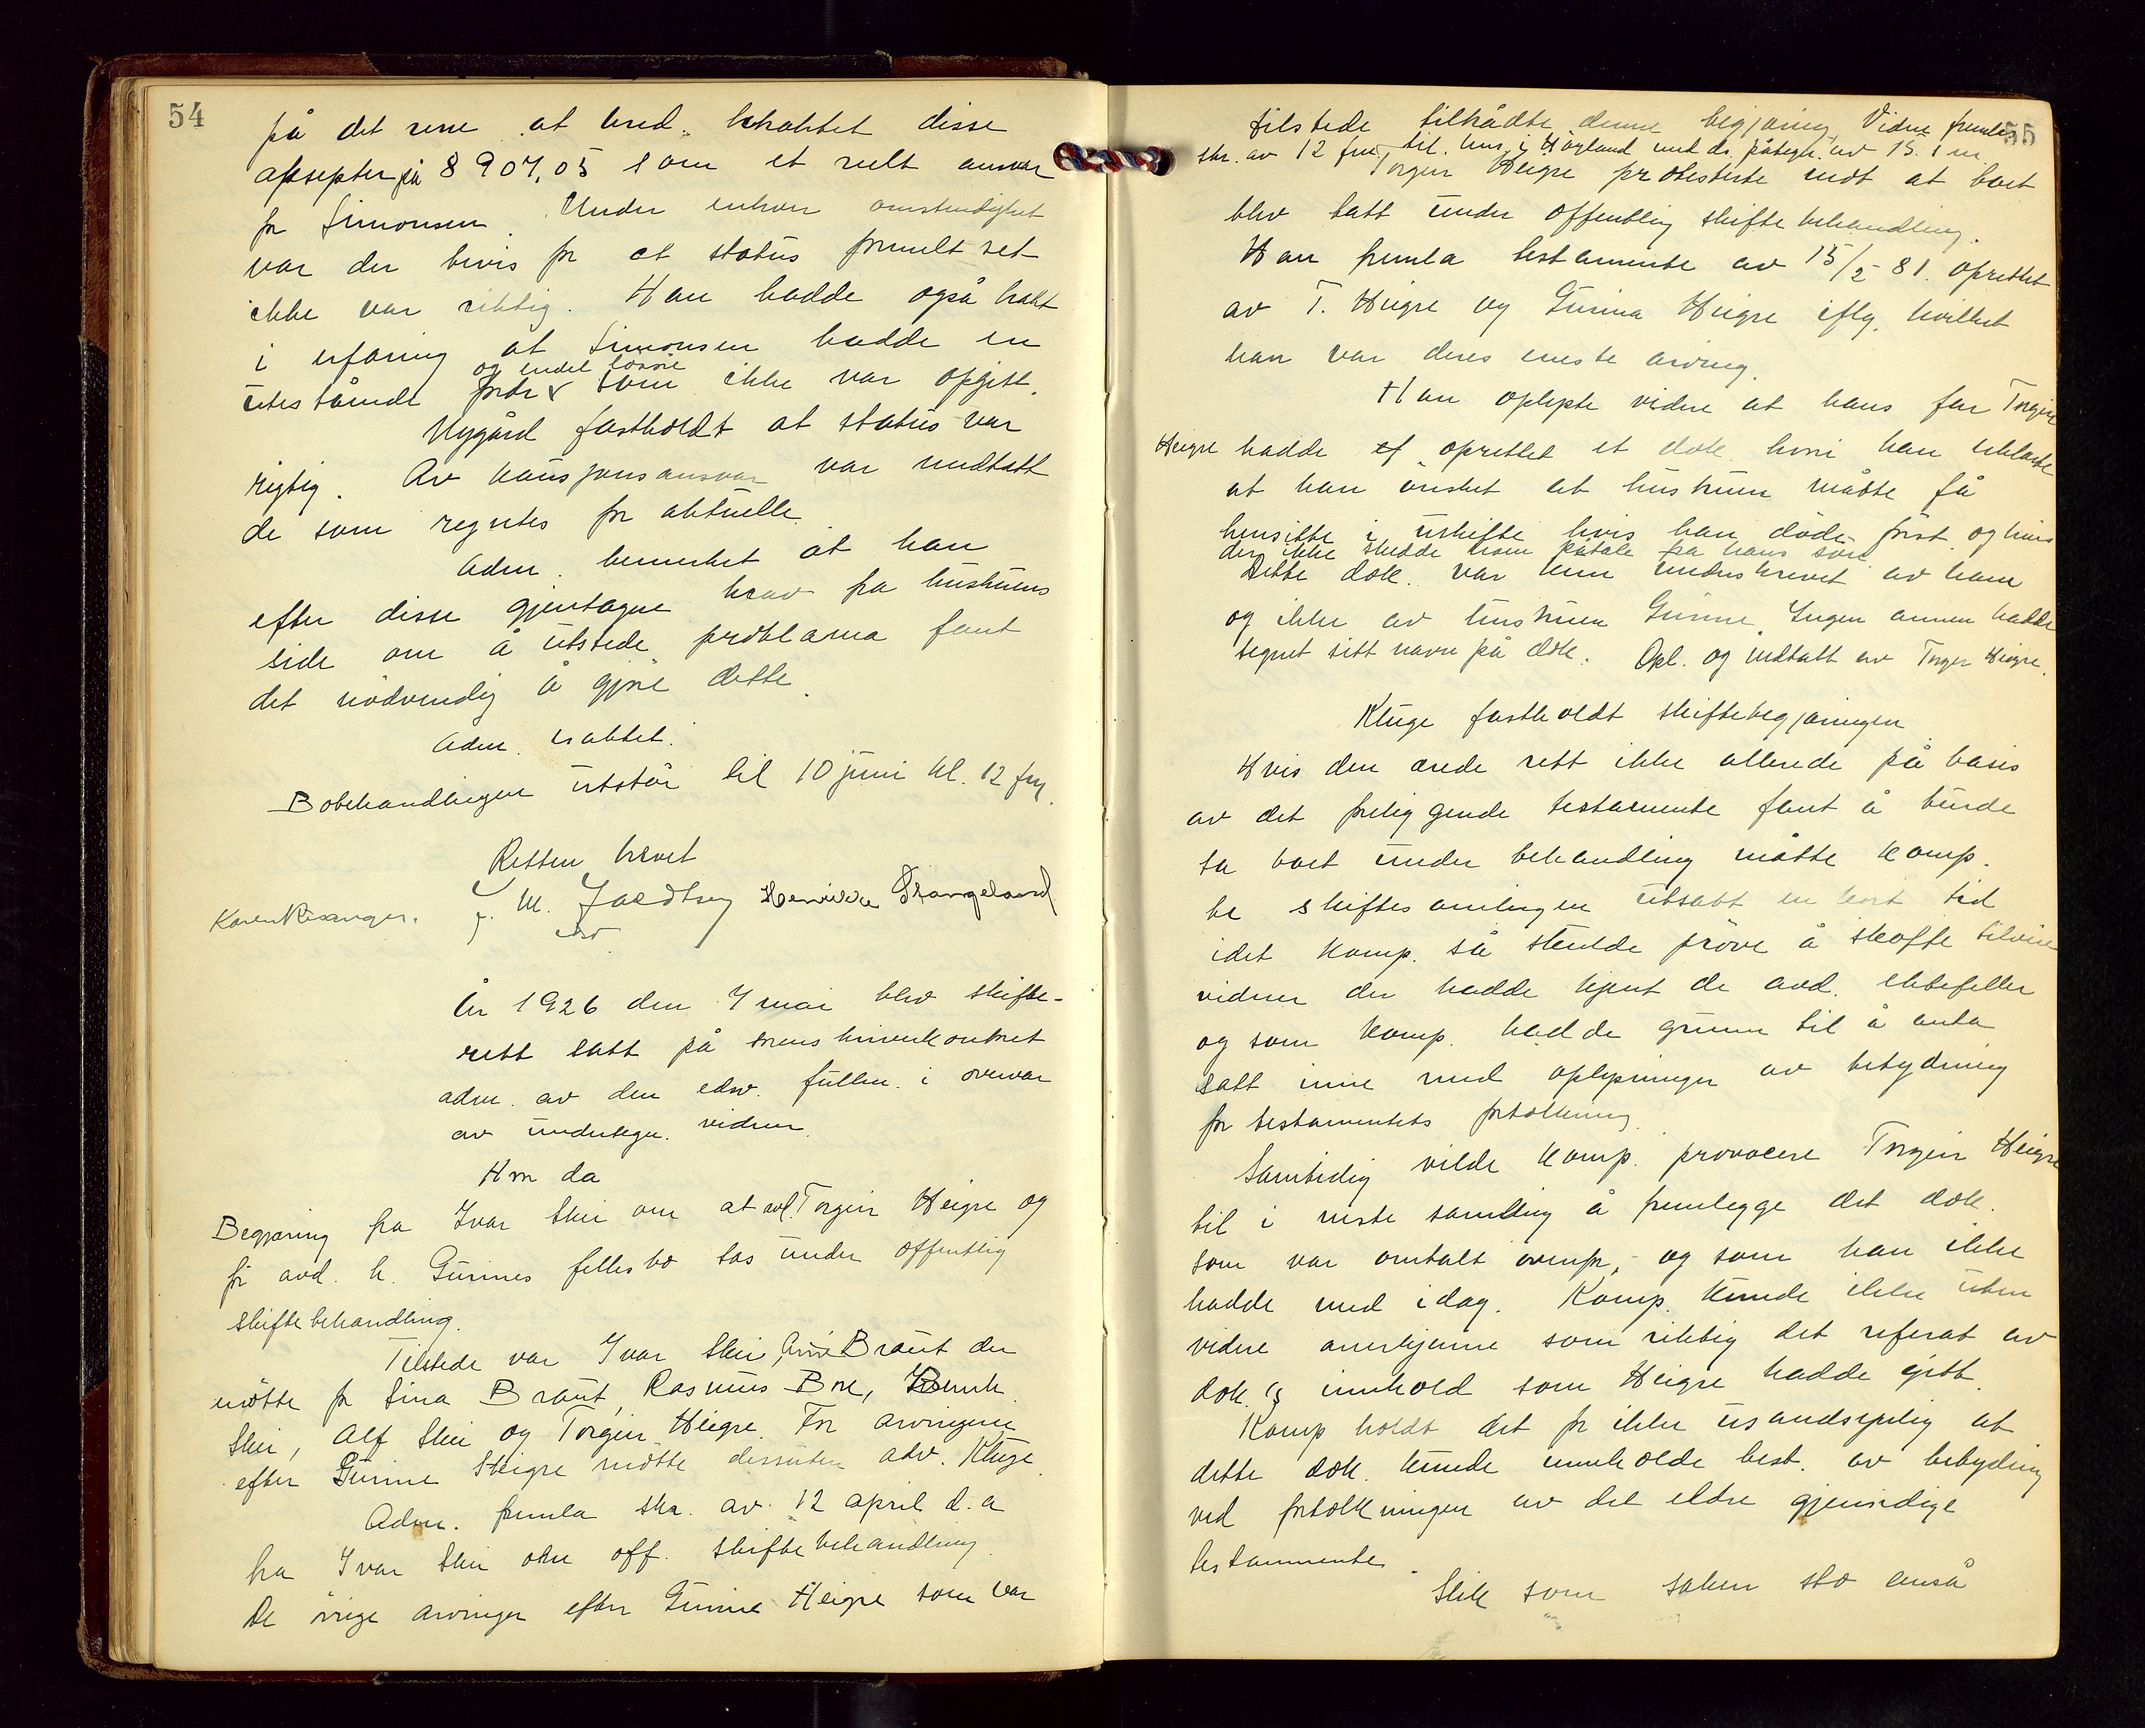 54
på det rene at kred. betraktet disse
aksepter på 8907,05 som et reelt ansvar
for Simonsen. Under enhver omstendighet
var der bevis for at status formelt set
ikke var riktig. Han hadde også bragt
i erfaring at Simonsen hadde en
og endel løsøre
utestående fordr. som ikke var opgitt.
Nygård fastholdt at status var
rigtig. Av kausjonsansvar var medtatt
de som regntes for aktuelle.
Adm. bemerket at han
efter disse gjentagne krav fra hustruens
side om å utstede proklama fant
det nødvendig å gjøre dette.
Adm. vraktet.
Bobehandlingen utstår til 10 juni kl. 12 fm.
Retten hevet
J. M. Jaedtsey Henrikke Stangeland
Karen Risanger.
År 1926 den 7 mai blev skifte-
rett satt på sorenskriverkontoret
adm. av den edsv. fullm. i overvær
av undertegn. vidner.
Hvor da
Begjæring fra Ivar Skei om at avd. Torgeir Heigre og
før avd. h. Gurines fellesbo tas under offentlig
skiftebehandling.
Tilstede var Ivar Skei, Arne Braut der
møtte for Sina Braut, Rasmus Bore,
Skei, Alf Skei og Torgeir Heigre. For arvingene
efter Gurine Heigre møtte dessuten adv. Kluge.
Adm. fremla skr. av 12 april d.a
fra Ivar Skei om off. skiftebehandling.
De øvrige arvinger efter Gurine Heigre som var
55
tilstede tilrådte denne begjæring. Videre fremla
skr. av 12 fm. til lens. i Høyland med ds. påtegn. av 15. s.m.
Torgeir Heigre protesterte mot at boet
blev tatt under offentlig skiftebehandling.
Han fremla testamente av 15/2-81. oprettet
av T. Heigre og Gurina Heigre iflg. hvilket
han var deres eneste arving.
Han oplyste videre at hans far Torgeir
Heigre hadde oprettet et dok. hvori han erklærte
at han ønsket at hustruen måtte få
hensitte i uskifte hvis han døde først og hvis
der ikke skedde noen påtale fra hans søn.
Dette dok. var kun underskrevet av ham
og ikke av hustruen Gurine. Ingen annen hadde
tegnet sitt navn på dok. Opl. og vedtatt av Torger Heigre.
Kluge fastholdt skiftebegjæringen
Hvis den ærede rett ikke allerede på basis
av det foreliggende testamente fant å burde
ta boet under behandling måtte komp.
be skiftesamlingen utsatt en kort tid
idet komp. så skulde prøve å skaffe tilveie
vidner der hadde kjent de avd. ektefeller
og som komp. hadde grunn til å anta
satt inne med oplysninger av betydning
for testamentets fortolkning.
Samtidig vilde komp. provocere Torgeir Heigre
til i neste samling å fremlegge det dok.
som var omtalt ovenfor, og som han ikke
hadde med idag. Komp. kunde ikke uten
videre anerkjenne som riktig det referat av
dok.s innhold som Heigre hadde gitt.
Komp holdt det for ikke usandsynlig at
dette dok. kunde inneholde best. av betydning
ved fortolkningen av det eldre gjensidige
testamente.
Slik som saken sto anså